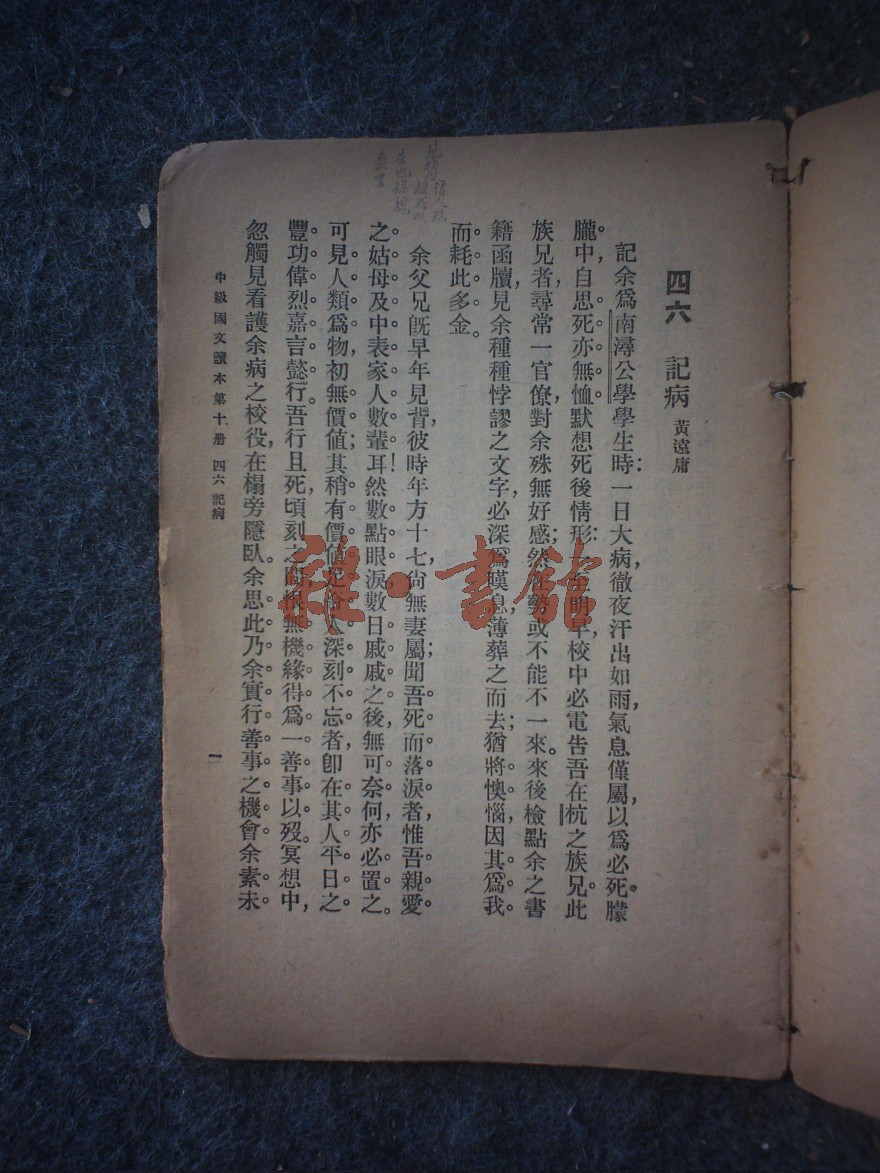 四六　記病　黃遠庸
記余爲南潯公學學生時；一日大病，徹夜汗出如雨，氣息僅屬，以爲必死。朦
朧中自思死亦無恤。默想死後情形：明早，校中必電告吾在杭之族兄。此
族兄者，尋常一官僚，對余殊無好感；然勢或不能不一來。來後檢點余之書
籍函牘，見余種種悖謬之文字，必深爲嘆息，薄葬之而去；猶將懊惱，因其爲我
而耗此多金。
余父兄旣早年見背，彼時年方十七，尙無妻屬；聞吾死而落淚者，惟吾親愛
之姑母及中表家人數輩耳！然數點眼淚，數日戚戚之後，無可奈何，亦必置之。
可見人類爲物，初無價值；其稍有價値，深刻不忘者，卽在其人平日之
豐功偉烈嘉言懿行。吾行且死，頃刻之間，恨無機緣得爲一善事以歿。冥想中，
忽觸見看護余病之校役，在榻旁隱臥。余思此乃余實行善事之機會。余素未
中級國文讀本第十册　四六　記病
一
雜·書館